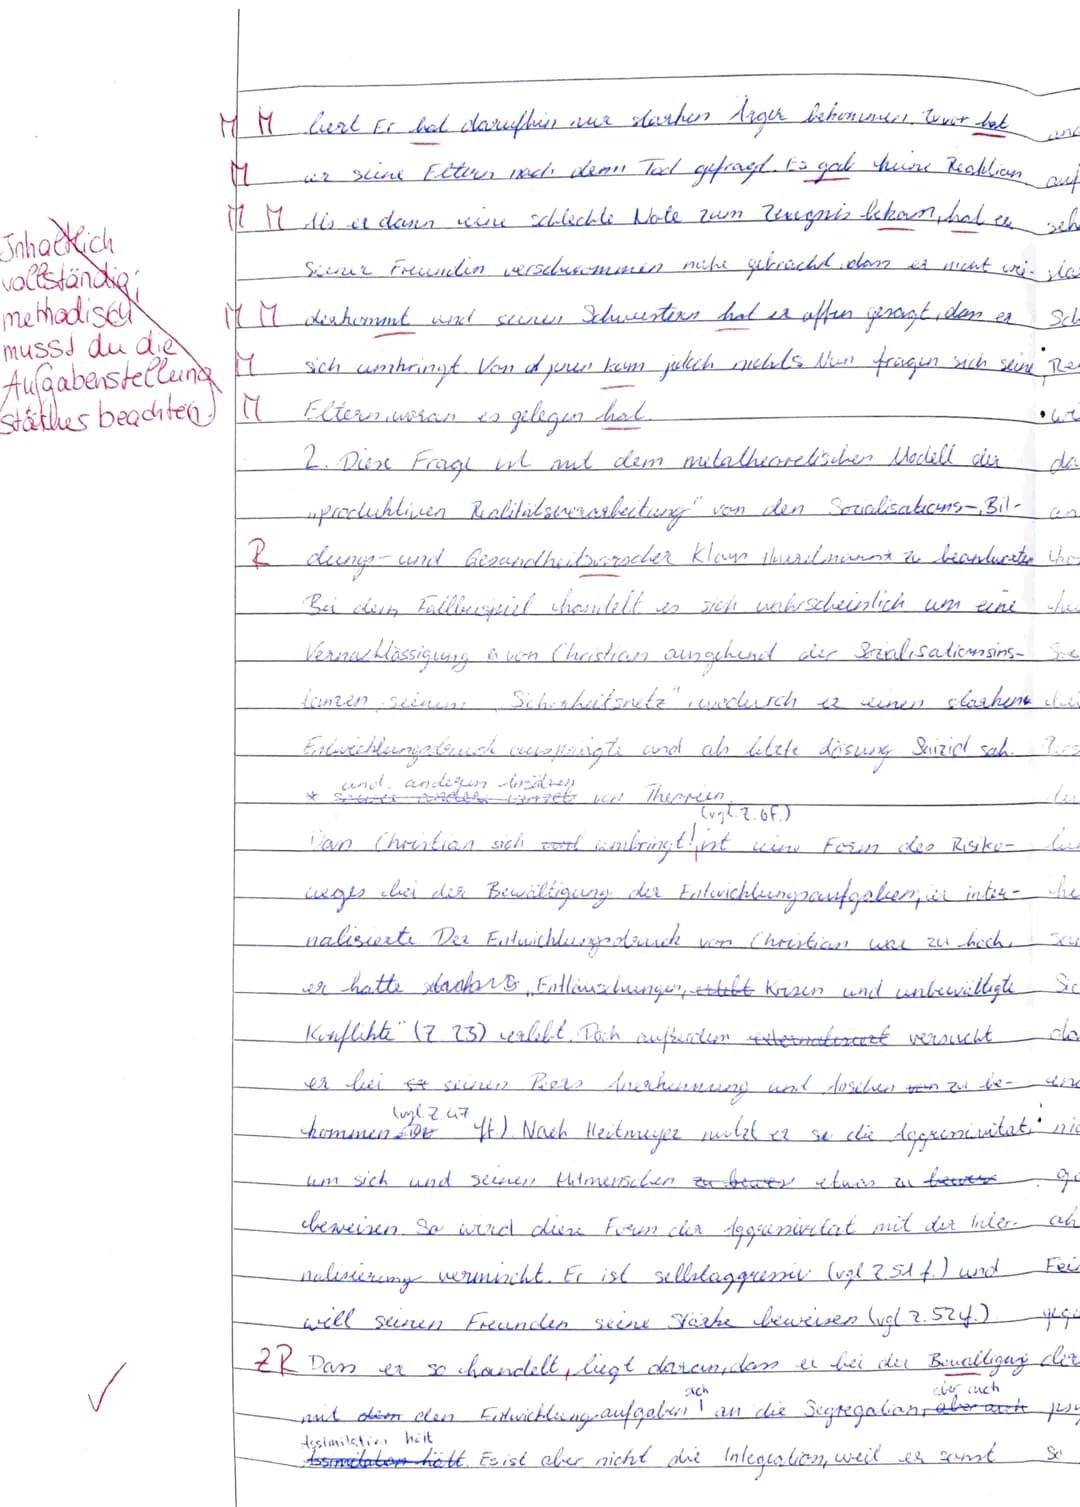 M M liert Er hat daraufhin nur starken Ärger bekommen. Zuvor hat
M er seine Eltern nach dem Tod gefragt. Es gab keine Reaktion
M M Als er dann eine schlechte Note zum Zeugnis bekam, hat er
Inhaltlich
vollständig;
methodisch
musst du die
Aufgabenstellung
stärker beachten.
seiner Freundin verschwommen nahe gebracht, dass er nicht wi-
M M derkommt und seinen Schwestern hat er offen gesagt, dass er
M sich umbringt. Von denen kam jedoch nichts Nun fragen sich seine
M Eltern, woran es gelegen hat.
2. Diese Frage ist mit dem metatheoretischen Modell der
„produktiven Realitätsverarbeitung" von den Sozialisations-, Bil-
R dungs- und Gesundheitsvorscher Klaus Hurrelmann zu beantworten
Bei dem Fallbeispiel handelt es sich wahrscheinlich um eine
Vernachlässigung von Christian ausgehend der Sozialisationsins-
tanzen, seinem „Sicherheitsnetz", wodurch er einen starken
Entwicklungsdruck ausprägte und als letzte Lösung Suizid sah.
und anderen Ansätzen
* von Theorien
(vgl. Z. 6f.)
Dass Christian sich umbringt, ist eine Form des Risiko-
weges bei der Bewältigung der Entwicklungsaufgaben, er inter-
nalisierte Der Entwicklungsdruck von Christian war zu hoch,
er hatte starke „Enttäuschungen, erlebt Krisen und unbewältigte
Konflikte" (Z 23) erlebt. Doch außerdem externalisiert versucht
er bei seinen Peers Anerkennung und Ansehen von zu be-
(vgl. Z 47
kommen ff.) Nach Heitmeyer nutzt er so die Aggressivität,
um sich und seinen Mitmenschen zu bewei etwas zu bewei
beweisen. So wird diese Form der Aggressivität mit der Inter-
nalisierung vermischt. Er ist selbstaggressiv (vgl Z 51 f.) und
will seinen Freunden seine Stärke beweisen (vgl Z. 52 f.).
ZR Dass er so handelt, liegt daran, dass er bei der Bewältigung
sich aber auch
mit dem den Entwicklungsaufgaben an die Segregation, aber auch
Assimilation hält
Assimilation hält. Es ist aber nicht die Integration, weil er sonst